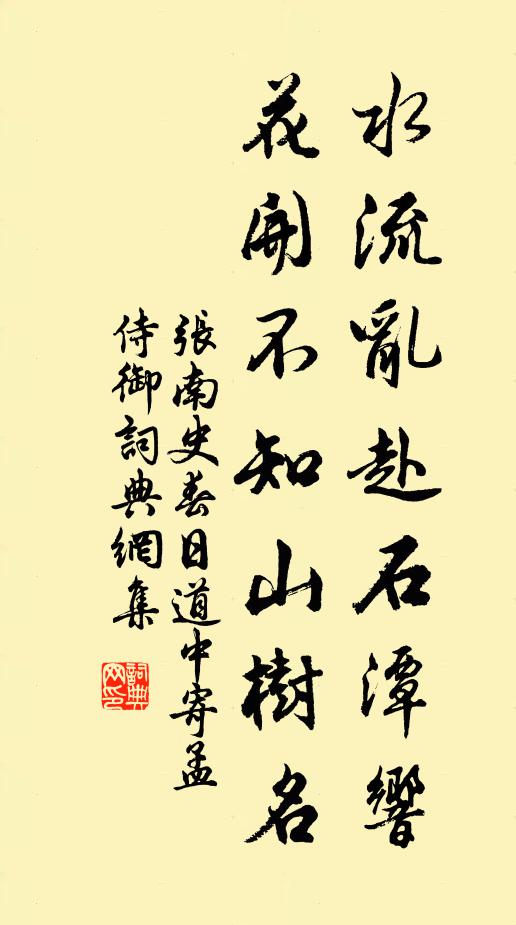 水流亂赴石潭響
花開不知山樹名
張南史春日道中寄孟
侍御詞典網集
詞典
网印